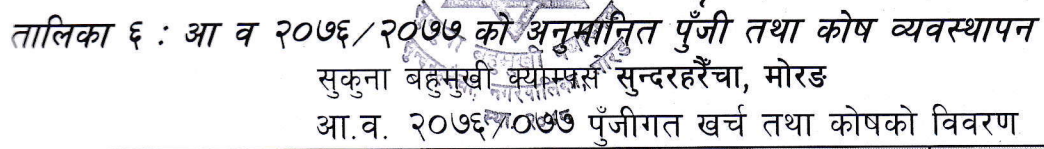 तालिका ६ : आ व २०७६/२०७७ को अनुमानित पुँजी तथा कोष व्यवस्थापन
सुकुना बहुमुखी क्याम्पस सुन्दरहरैंचा, मोरङ
आ.व. २०७६/०७७ पुँजीगत खर्च तथा कोषको विवरण